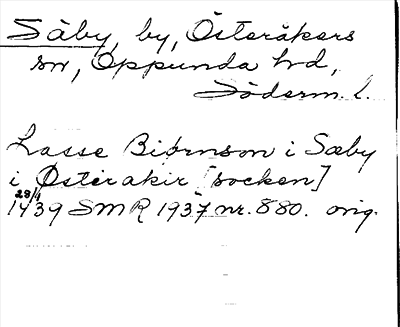 Säby, by, Österåkers
sn, Oppunda hd,
Söderm. l.
Lasse Biørnson i Sæby
i Østerakir [socken]
28/4
1439 SMR 1937 nr. 880. orig.